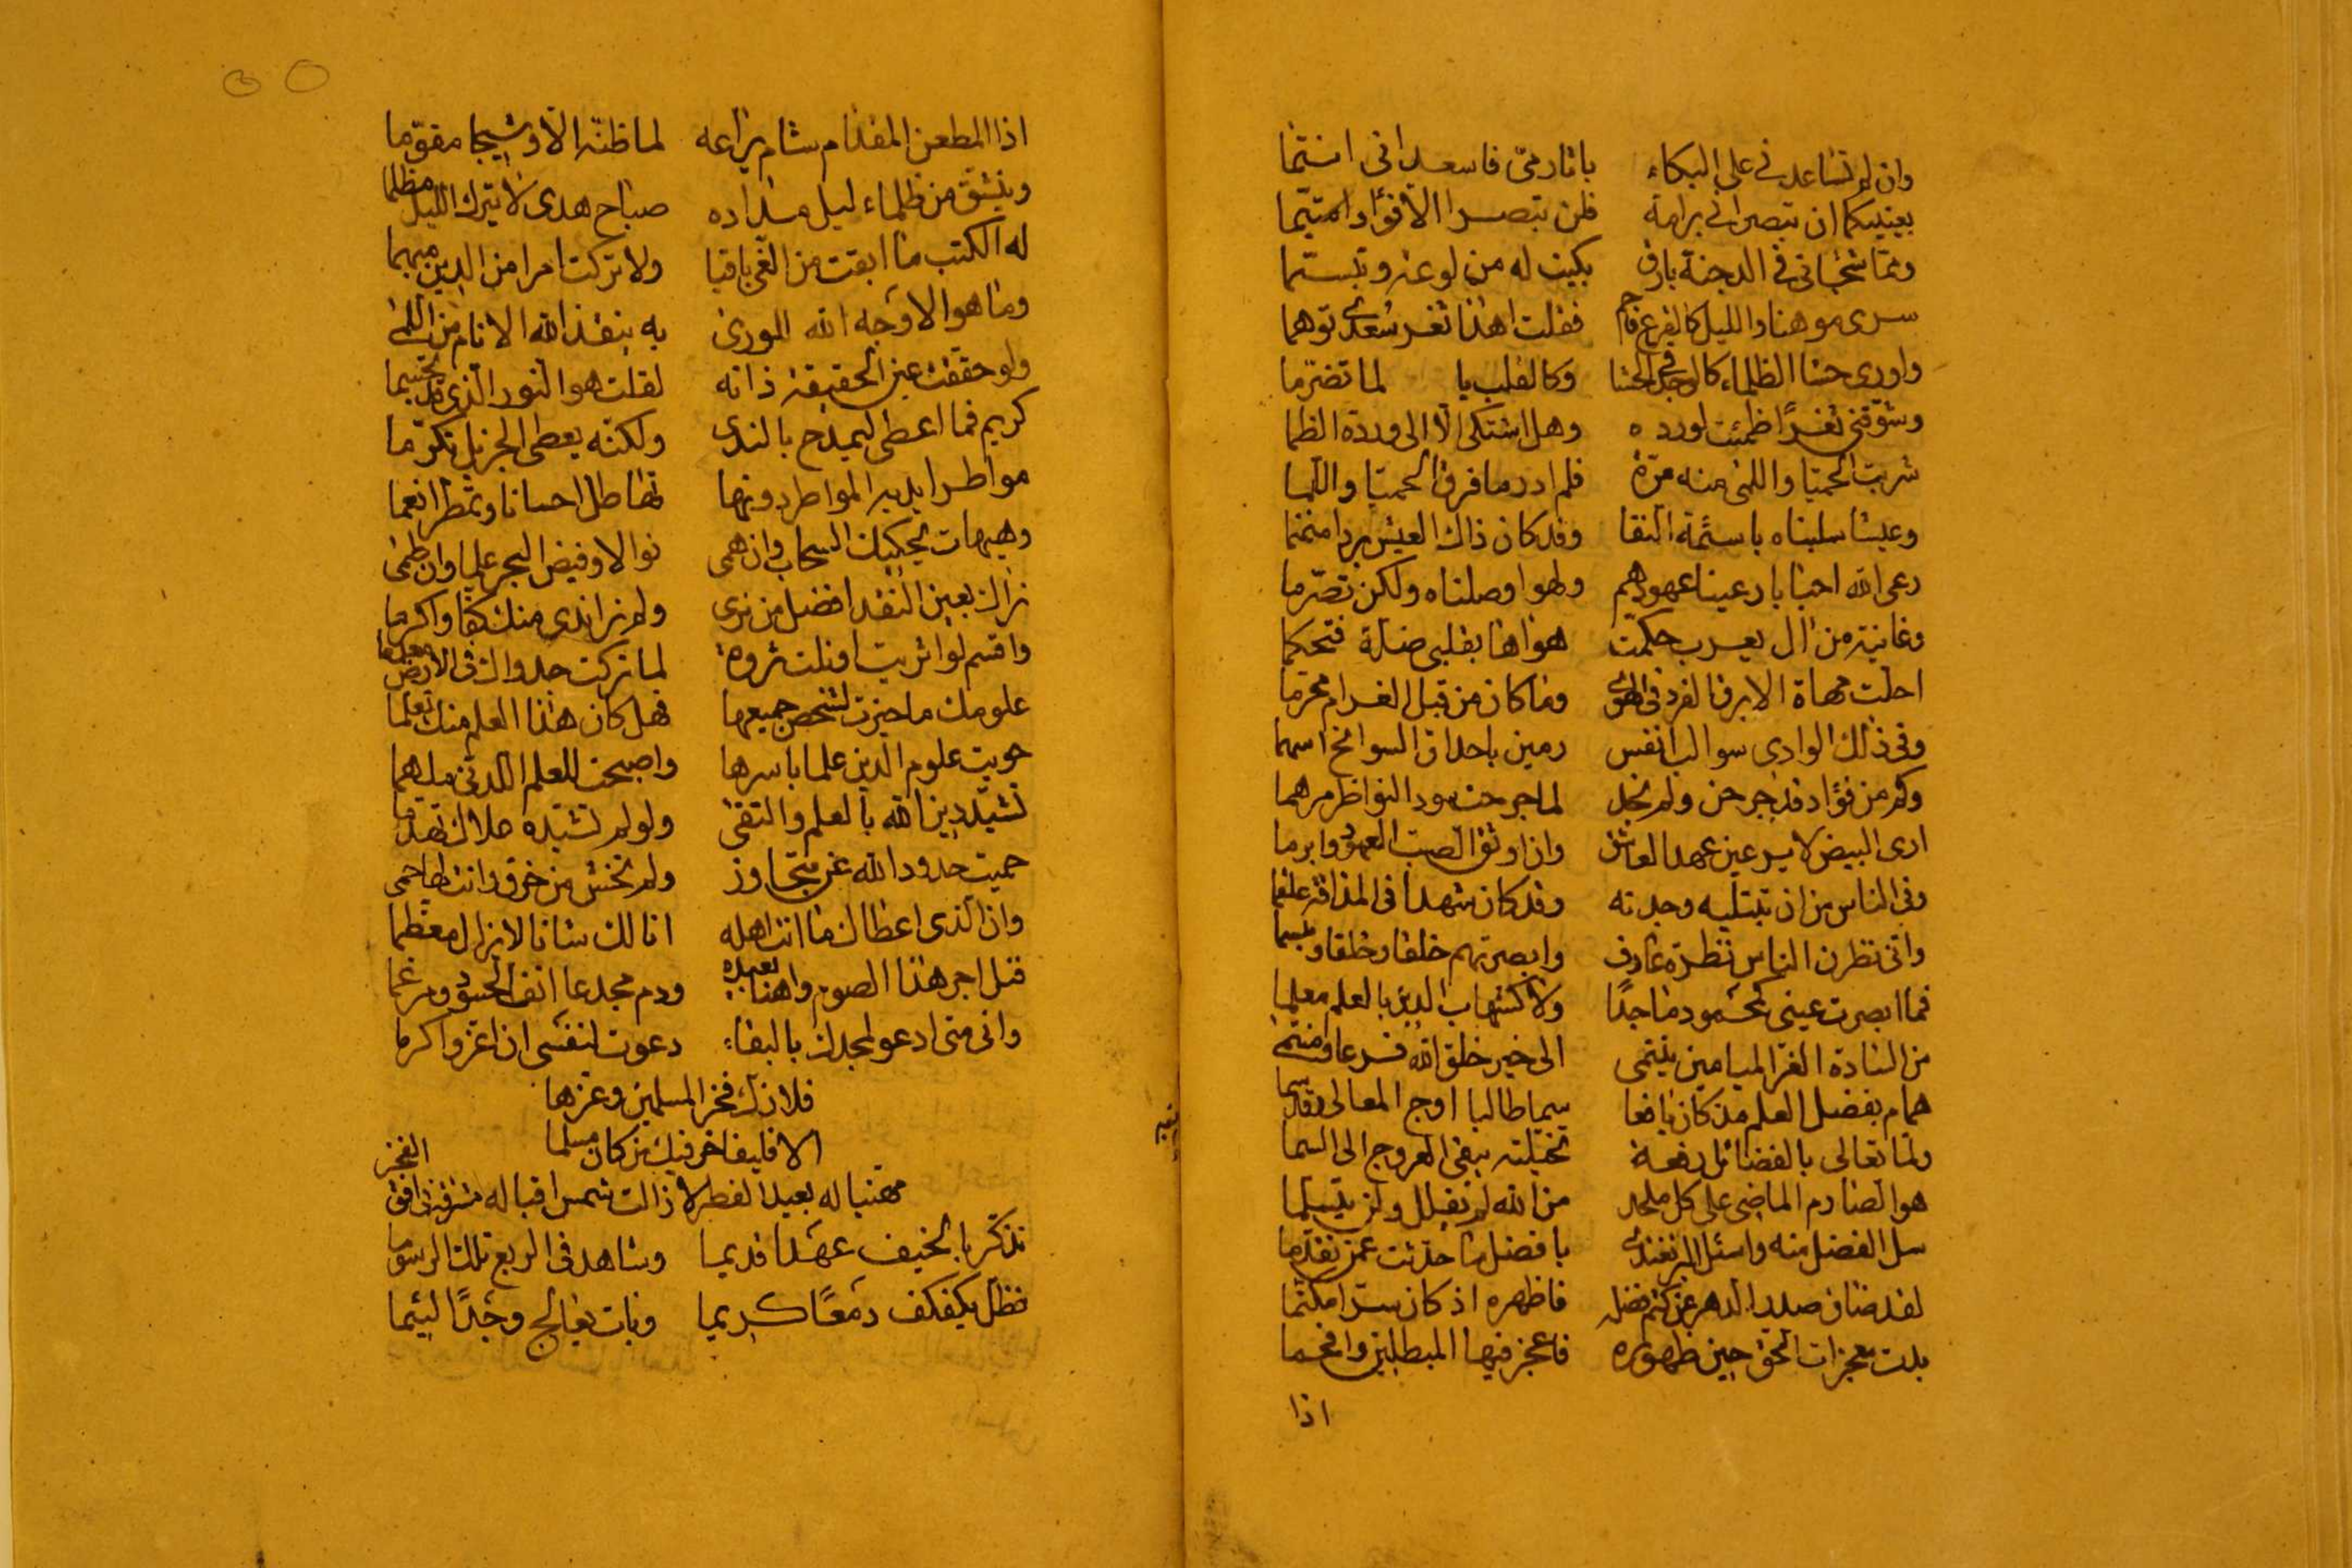 وان لم تساعدني على البكاء باثار ميّ فاسعداني انتما
بعينيكما ان تبصراني برامة فلن تبصرا الا فؤادا متيّما
وممّا شجاني في الدجنة بارق بكيت له من لوعة وتبسّما
سرى موهنا والليل كالفرع فاحم فقلت اهذا ثغر سُعدى توهما
واورى حشا الظلماء كالوجد في الحشا وكالقلب يا لما تضرّما
وشوّقني ثغرًا ظمئت لورده وهل اشتكى الا الى ورده الظما
شربت الحميّا واللمى منه مرّة فلم ادر ما فرق الحميّا واللما
وعيشا سلبناه باسنمة النقا وقد كان ذاك العيش بردا منمنما
رعى الله احبابا رعينا عهودهم ولهوا وصلناه ولكن تصرّما
وغانية من آل يعرب حكّمت هواها بقلبي ضلة فتحكما
احلت مهاة الابرق الفرد في الهوى وما كان من قبل الغرام محرّما
وفي ذلك الوادي سوالب انفس رمين باحداق السوانح اسهما
وكم من فؤاد قد جرحن ولم نجد لما جرحت سود النواظر مرهما
ارى البيض لا يرعين عهدا لعاشق وان اوثق الصبّ العهود وابرما
وفي الناس من ان تبتليه وجدته وقد كان شهدا في المذاقة علقما
واني نظرت الناس نظرة عارف وابصرتهم خلقا وخلقا وميسما
فما ابصرت عيني كمحمود ماجدًا ولا كشهاب الدين بالعلم معلما
من السادة الغرّ الميامين ينتمي الى خير خلق الله فرعا ومنتمى
همام بفضل العلم مذ كان يافعا سما طالبا اوج المعالي وقد سما
ولما تعالى بالفضائل رفعة تخيّلته يبغي العروج الى السما
هو الصارم الماضي على كل ملحد من الله لم يفلل ولن يتثلما
سل الفضل منه واسئل المرء عنده بافضل ما حدّثت عمن تقدّما
لقد ضاق صدر الدهر عن كتم فضله فاظهره اذ كان سرّا مكتّما
بدت معجزات الحق حين ظهوره فاعجز فيها المبطلين وافحما
اذا
اذا المطعن المقدام شام يراعه لما ظنّه الا وشيجا مقوّما
وينشق من ظلماء ليل مداده صباح هدى لا يترك الليل مظلما
له الكتب ما ابقت من الغيّ باقيا ولا تركت امرا من الدين مبهما
وما هو الا وجه الله للورى به ينقذ الله الانام من العمى
ولو حققت عين الحقيقة ذاته لقلت هو النور الذي قد تجسّما
كريم فما اعطى ليمدح بالندى ولكنّه يعطى الجزيل تكرّما
مواطر ايديه المواطر دونها تهاطل احسانا وتمطر انعما
وهيهات يحكيك السحاب وان همى نوالا وفيض البحر علما وان طمى
نراك بعين النقد افضل من نرى ولم نر اندى منك كفّا واكرما
واقسم لو اثريت او نلت ثروة لما تركت جدواك في الارض معدما
علومك ما حيزت لشخص جميعها فهل كان هذا العلم منك تعلّما
حويت علوم الدين علما باسرها واصبحت للعلم اللدنّي ملهما
تشيّد دين الله بالعلم والتقى ولو لم تشيّده علاك تهدّما
حميت حدود الله عن متجاوز ولم تخش من خرق وانت لها حمى
وان الذي اعطاك ما انت اهله انالك شانا لا يزال معظّما
فنل اجر هذا الصوم واهنأ بعيده ودم مجدعا انف الحسود ومرغما
واني متى ادعو لمجدك بالبقاء دعوت لنفسي ان اعز واكرما
فلا زلت فخر المسلمين وعزها
الا فليفاخر فيك من كان مسلما
مهنيا له بعيد الفطر لا زالت شمس اقباله مشرقة في افق الفخر
تذكّر بالخيف عهدًا قديما وشاهد في الربع تلك الرسوما
فظلّ يكفكف دمعًا كريما وبات يعالج وجدًا لئيما